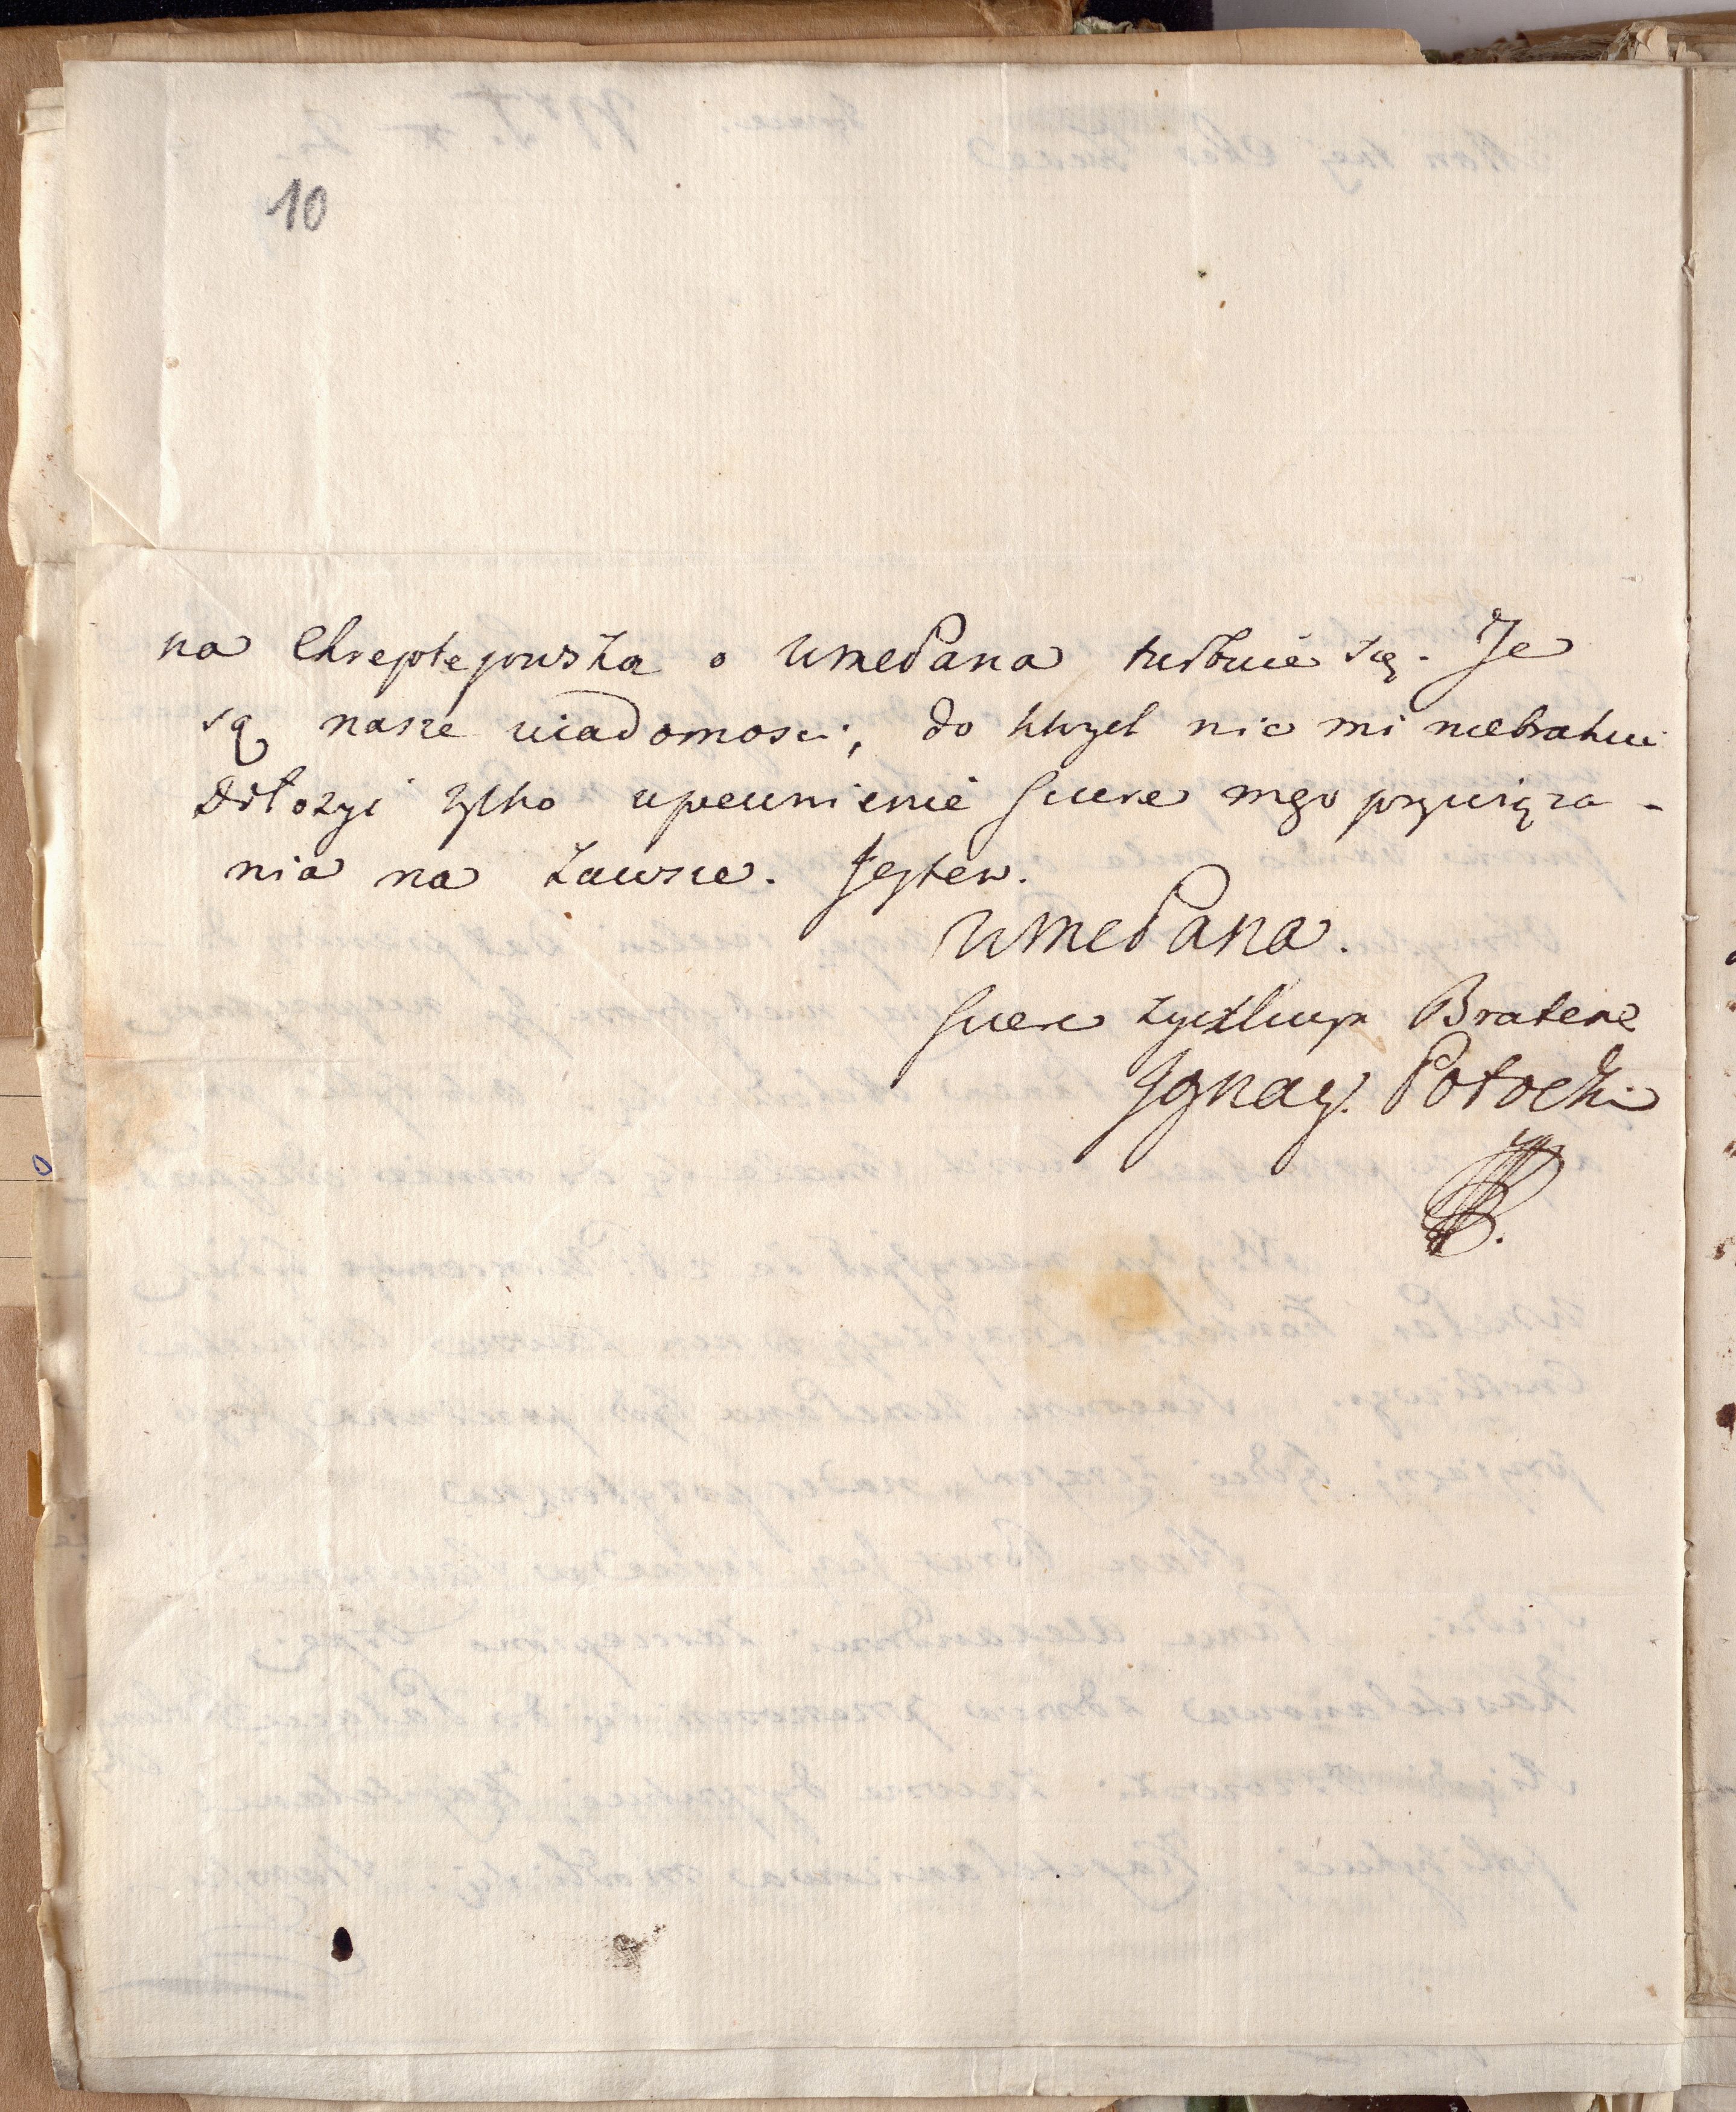 10
na Chreptepowska o WmePana turbuie się. Te
są nasze wiadomosci, do ktrych nic mi niebrakuie
dołozyi tylko upewnienie sczere mego przywiąza-
nia na zawsze. Jestem.
WmePana.
sczere zyczliwym Bratem
Ignacy. Potocki